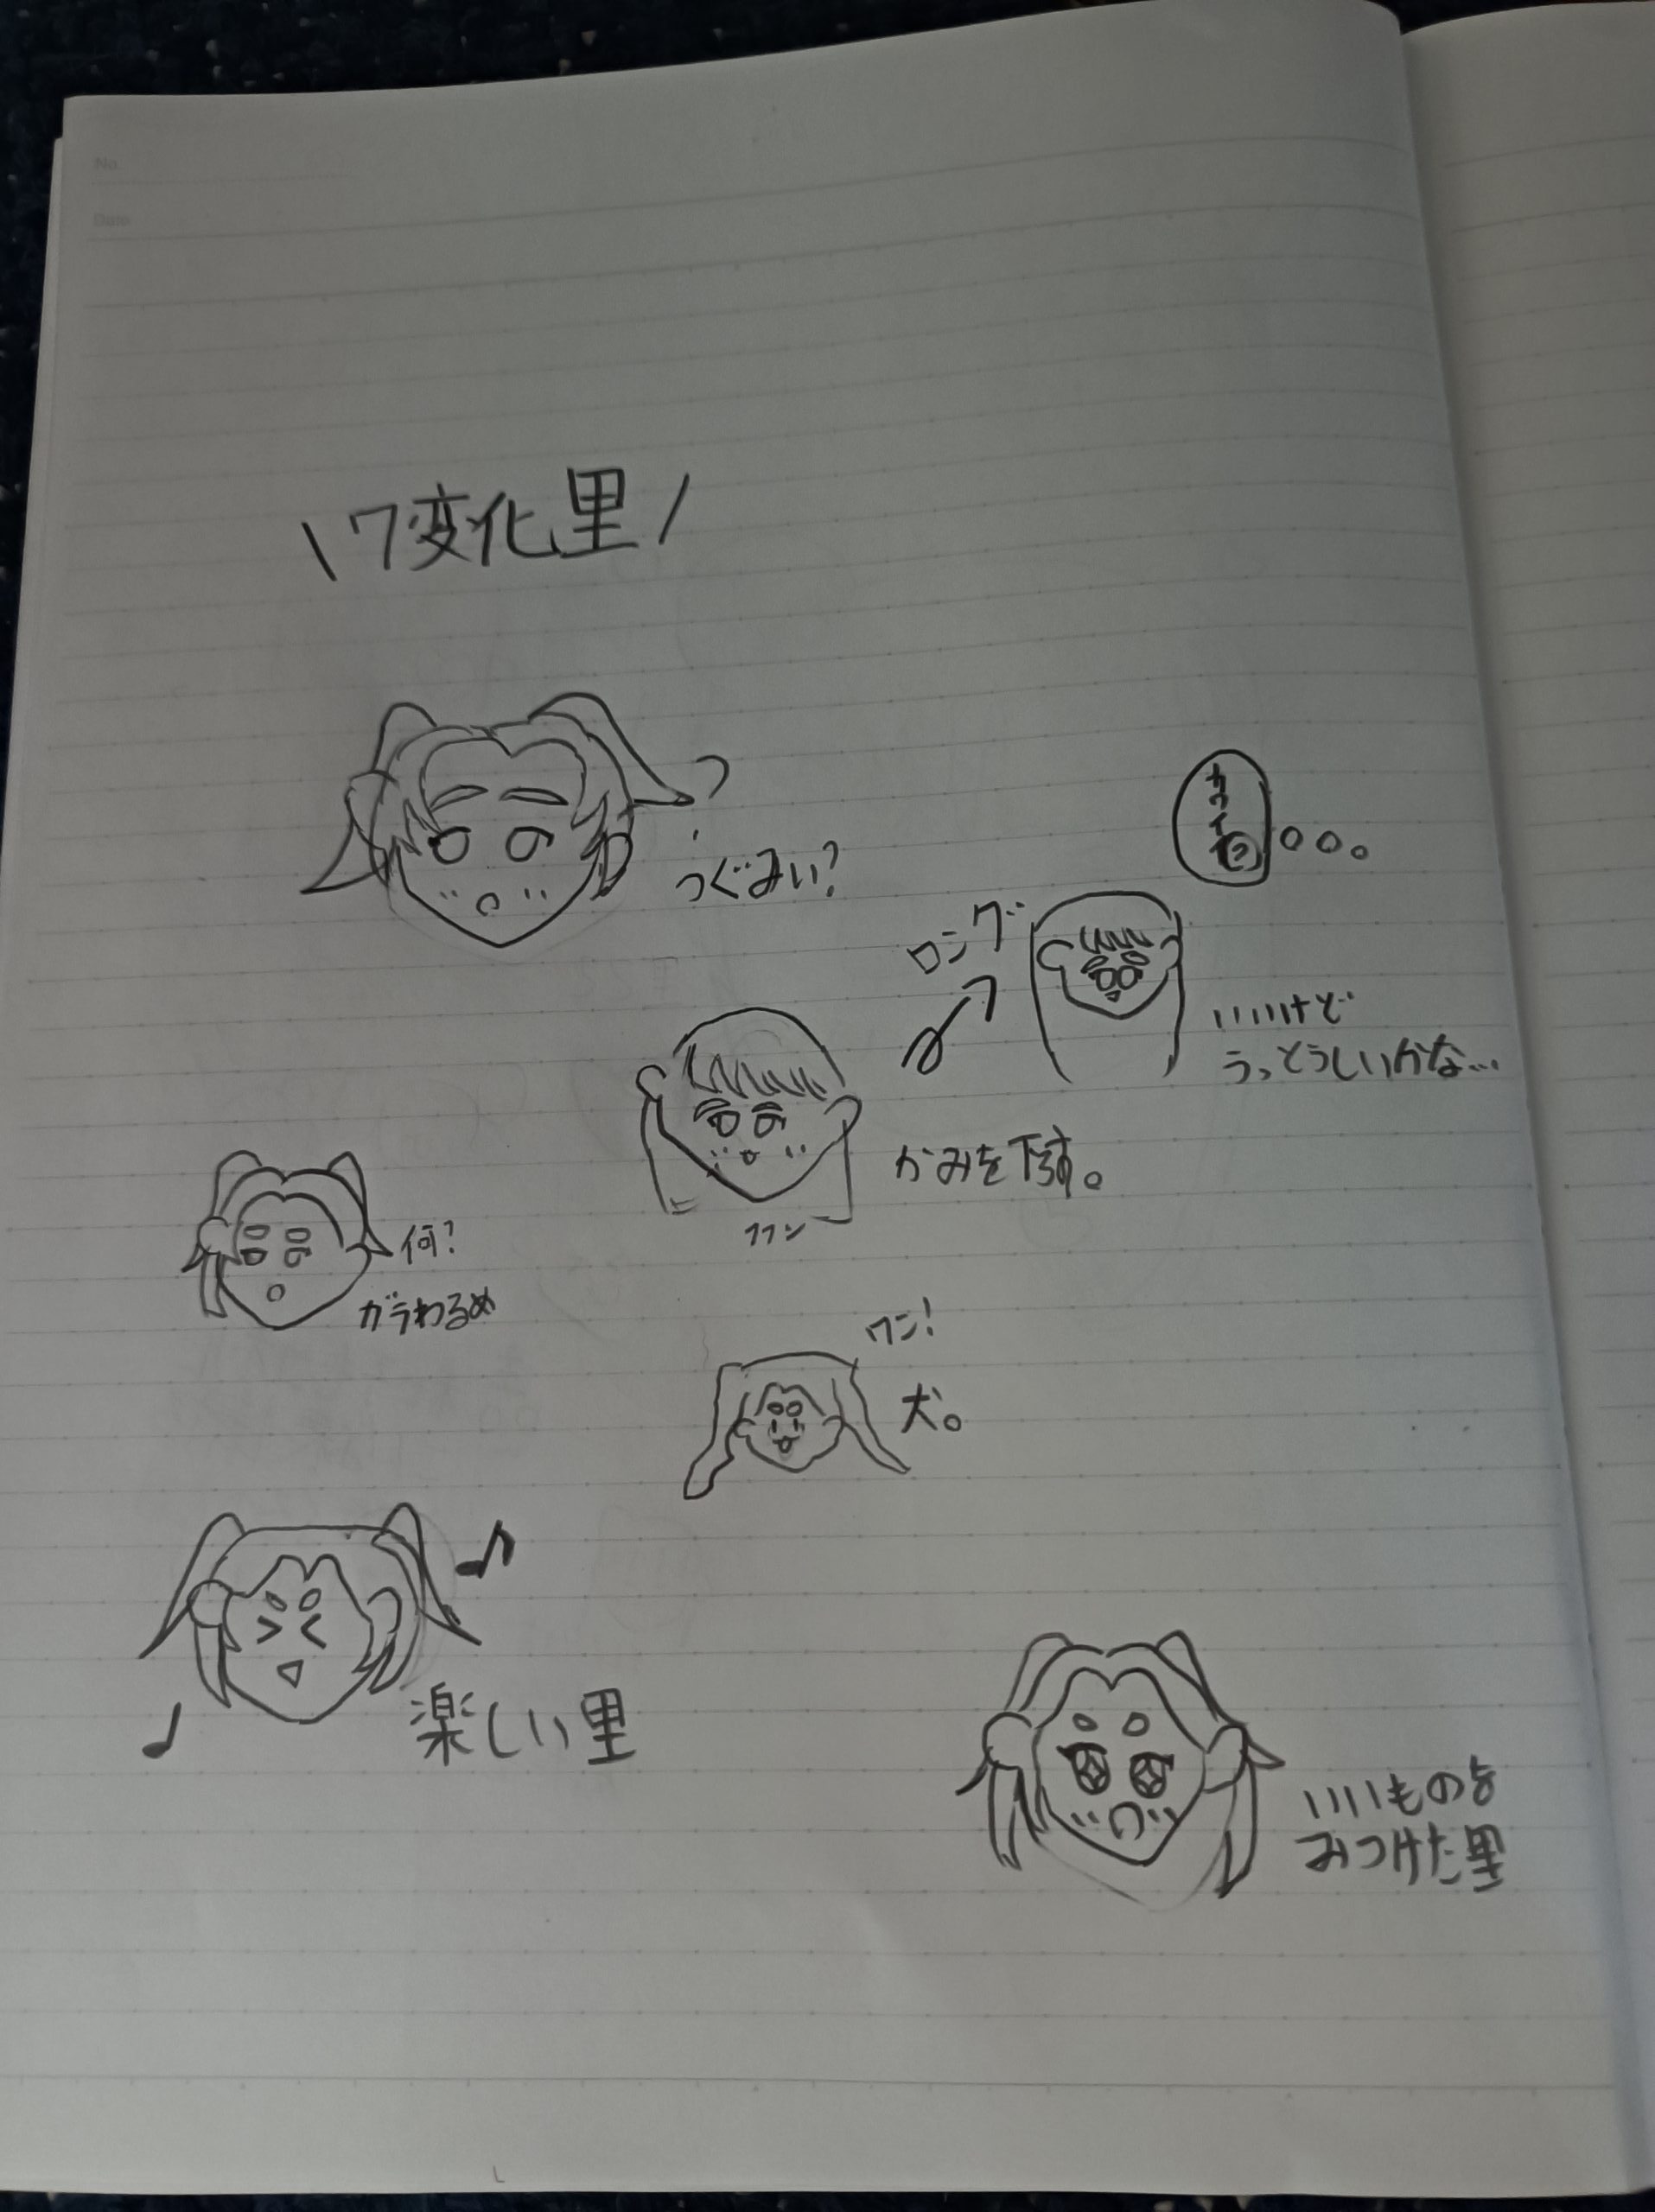 No.
Date
\7変化里/
つぐみい?
カワイイ
ロング
いいけど
うっとうしいかな…
かみを下ろす。
フフン
何?
ガラわるめ
ワン!
犬。
楽しい里
いいものを
みつけた里